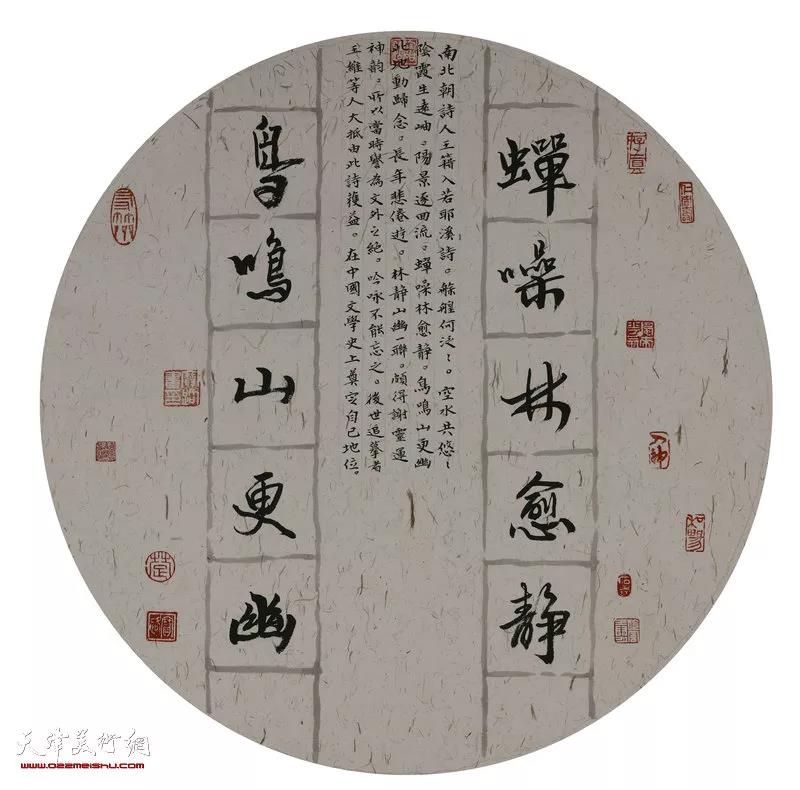 蟬噪林愈静
鳥鳴山更幽
南北朝詩人王籍入若耶溪詩。艅艎何泛〻。空水共悠〻
陰霞生遠岫。陽景逐回流。蟬噪林愈静。鳥鳴山更幽
此地動歸念。長年悲倦遊。林静山幽一聯。頗得謝靈運
神韵。所以當時譽為文外之絶。吟咏不能忘之。後世追摹者
王維等人大抵由此詩獲益。在中國文學史上奠定自己地位。
天津美術網
www.022meishu.com